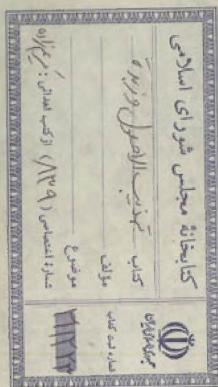 کتابخانهٔ مجلس شورای اسلامی
کتاب تهذیب الاصول و زبدة
مؤلف
موضوع
شمارهٔ اختصاصی (۱۳۹) از کتب اهدائی:
جمهوری اسلامی ایران
شمارهٔ ثبت کتاب